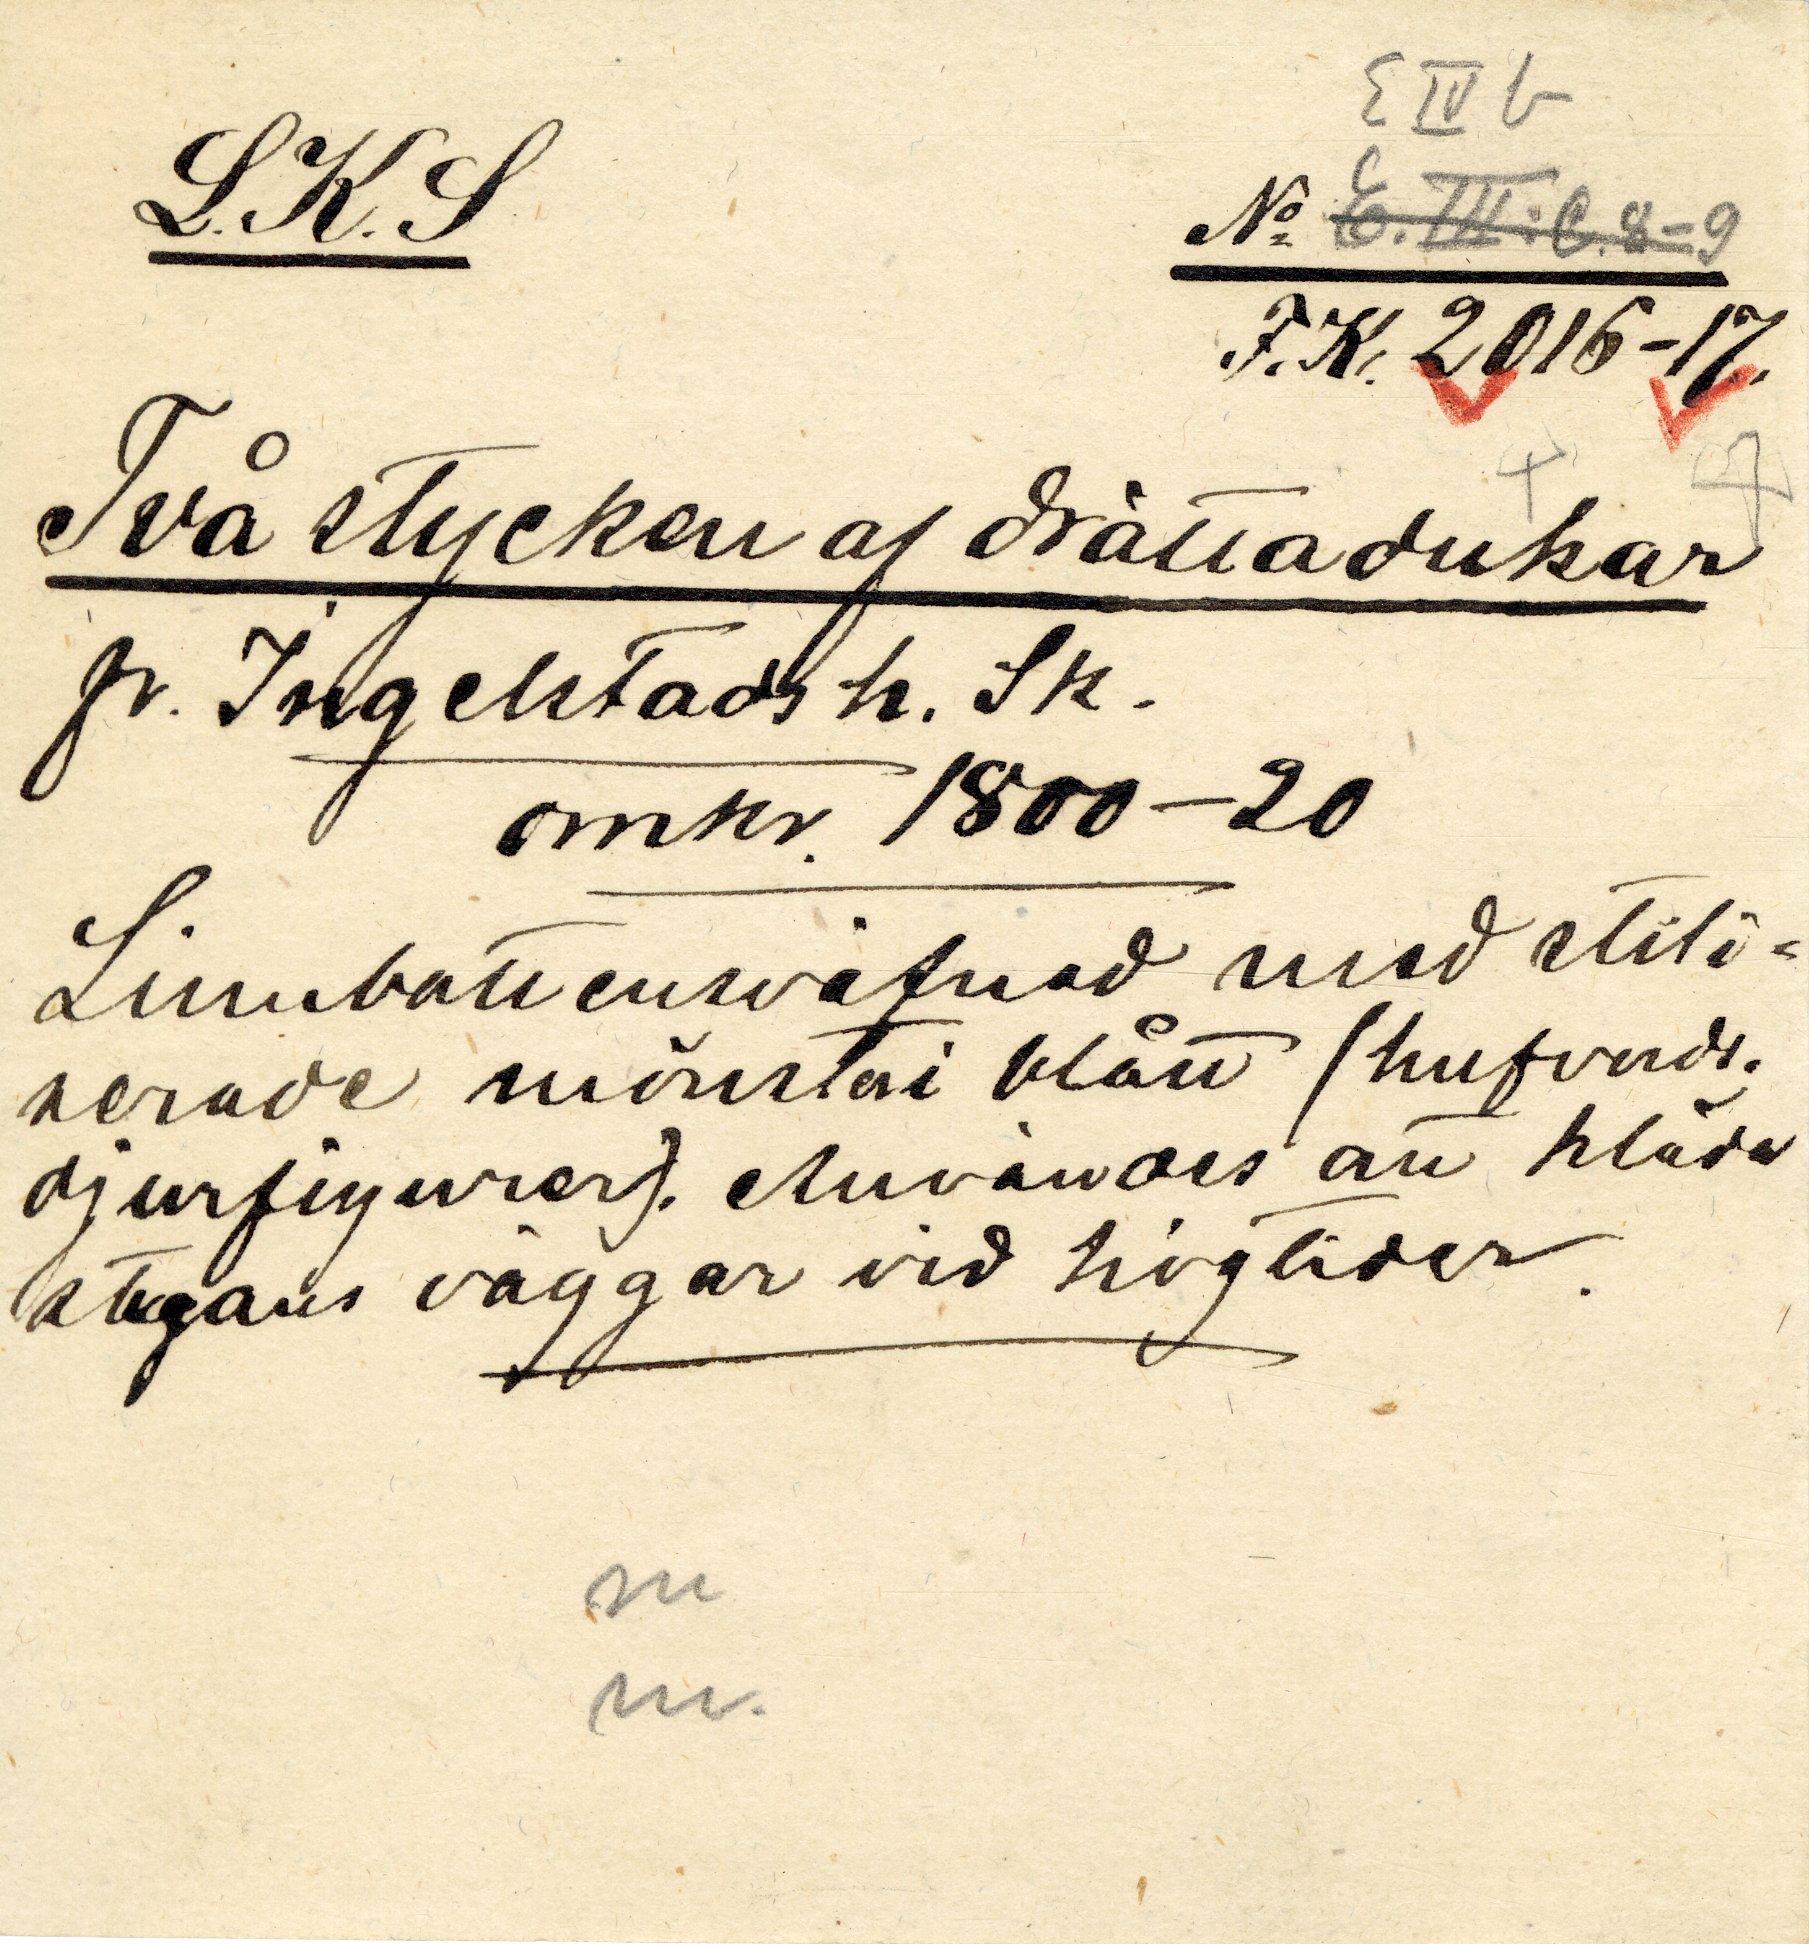 E IV b
L.K.S
No E. III: C. 8-9
F.K. 2016-17.
Två stycken af drättadukar
fr. Ingelstads h. Sk.
omkr. 1800-20
Linnbottensväfnad med stili=
serade mönster i blått (hufvuds.
djurfigurer). Användes att kläda
stugans väggar vid högtider.